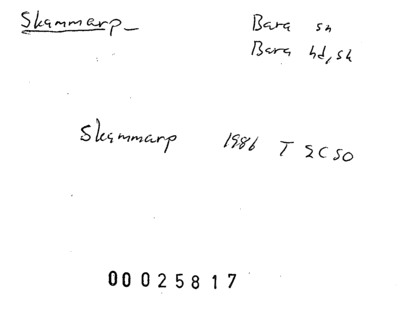 Skammarp
Bara sn
Bara hd, Sk
Skammarp 1986 T 2C 50
00025817